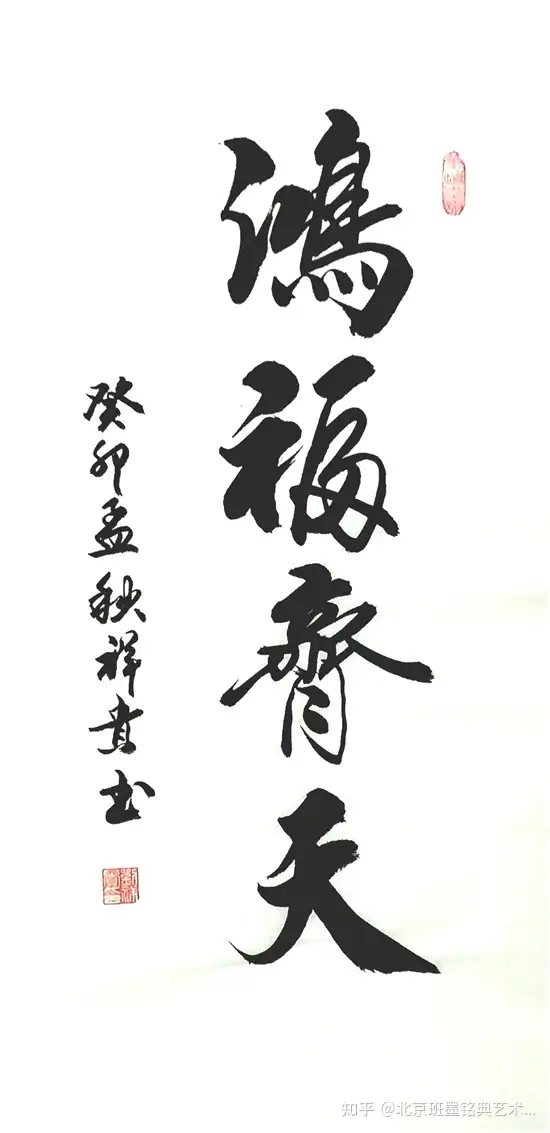 鴻福齊天
癸卯孟秋祥貴书
知乎 @北京班墨铭典艺术...